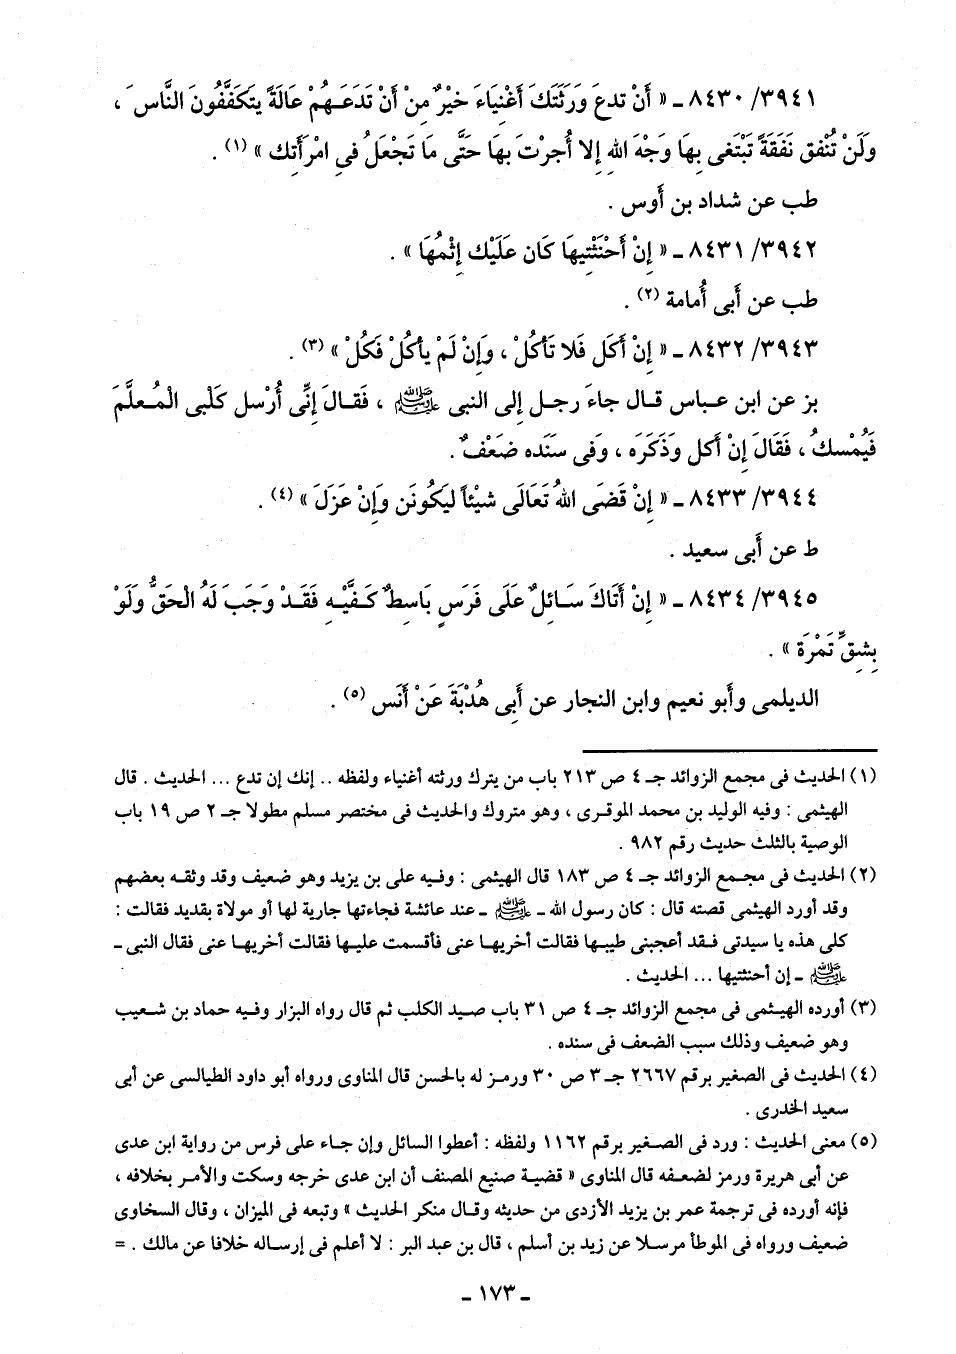 ٣٩٤١/ ٨٤٣٠ ـ « أَنْ تدعَ وَرَثَتَكَ أَغْنِيَاءَ خيْرٌ مِنْ أَنْ تَدَعَهُمْ عَالَةً يتَكَفَّفُونَ النَّاسَ ،
وَلَنْ تُنْفِق نَفَقَةً تَبْتَغى بِهَا وَجْهَ اللهِ إِلا أُجِرْتَ بِهَا حَتَّى مَا تَجْعَلُ فى امْرَأَتِكَ » (١) .
طب عن شداد بن أَوس .
٣٩٤٢/ ٨٤٣١ ـ « إِنْ أَحْنَثْتِيهَا كَان عَلَيْك إِثْمُهَا » .
طب عن أَبى أُمامة (٢) .
٣٩٤٣/ ٨٤٣٢ ـ « إِنْ أَكَل فَلا تَأكُلْ ، وَإِنْ لَمْ يأكُلْ فَكُلْ » (٣) .
بز عن ابن عباس قال جاءَ رجل إِلى النبى ﷺ ، فَقَالَ إِنِّى أُرْسل كَلْبى الْمُعلَّمَ
فَيُمْسكُ ، فَقَالَ إِنْ أَكل وَذَكَرَه ، وَفى سَنَده ضَعْفٌ .
٣٩٤٤/ ٨٤٣٣ ـ « إِنْ قَضَى اللهُ تَعَالَى شيْئاً ليَكُونَن وَإِنْ عَزَلَ » (٤) .
ط عن أَبى سعيد .
٣٩٤٥/ ٨٤٣٤ ـ « إِنْ أَتَاكَ سَائِلٌ عَلَى فَرَسٍ بَاسِطٌ كَفَّيْهِ فَقَدْ وَجَبَ لَهُ الْحَقُّ وَلَوْ
بِشِقِّ تَمْرَة » .
الديلمى وأَبو نعيم وابن النجار عن أَبِى هُدْبَةَ عَنْ أَنَس (٥) .
(١) الحديث فى مجمع الزوائد جـ ٤ ص ٢١٣ باب من يترك ورثته أغنياء ولفظه .. إنك إن تدع ... الحديث . قال
الهيثمى : وفيه الوليد بن محمد الموقرى ، وهو متروك والحديث فى مختصر مسلم مطولا جـ ٢ ص ١٩ باب
الوصية بالثلث حديث رقم ٩٨٢ .
(٢) الحديث فى مجمع الزوائد جـ ٤ ص ١٨٣ قال الهيثمى : وفيه على بن يزيد وهو ضعيف وقد وثقه بعضهم
وقد أورد الهيثمى قصته قال : كان رسول الله ـ ﷺ ـ عند عائشة فجاءتها جارية لها أو مولاة بقديد فقالت :
كلى هذه يا سيدتى فقد أعجبنى طيبها فقالت أخريها عنى فأقسمت عليها فقالت أخريها عنى فقال النبى ـ
ﷺ ـ إن أحنثتيها ... الحديث .
(٣) أورده الهيثمى فى مجمع الزوائد جـ ٤ ص ٣١ باب صيد الكلب ثم قال رواه البزار وفيه حماد بن شعيب
وهو ضعيف وذلك سبب الضعف فى سنده .
(٤) الحديث فى الصغير برقم ٢٦٦٧ جـ ٣ ص ٣٠ ورمز له بالحسن قال المناوى ورواه أبو داود الطيالسى عن أبى
سعيد الخدرى .
(٥) معنى الحديث : ورد فى الصغير برقم ١١٦٢ ولفظه : أعطوا السائل وإن جاء على فرس من رواية ابن عدى
عن أبى هريرة ورمز لضعفه قال المناوى « قضية صنيع المصنف أن ابن عدى خرجه وسكت والأمر بخلافه ،
فإنه أورده فى ترجمة عمر بن يزيد الأزدى من حديثه وقال منكر الحديث » وتبعه فى الميزان ، وقال السخاوى
ضعيف ورواه فى الموطأ مرسلا عن زيد بن أسلم ، قال بن عبد البر : لا أعلم فى إرساله خلافا عن مالك . =
ـ ١٧٣ ـ